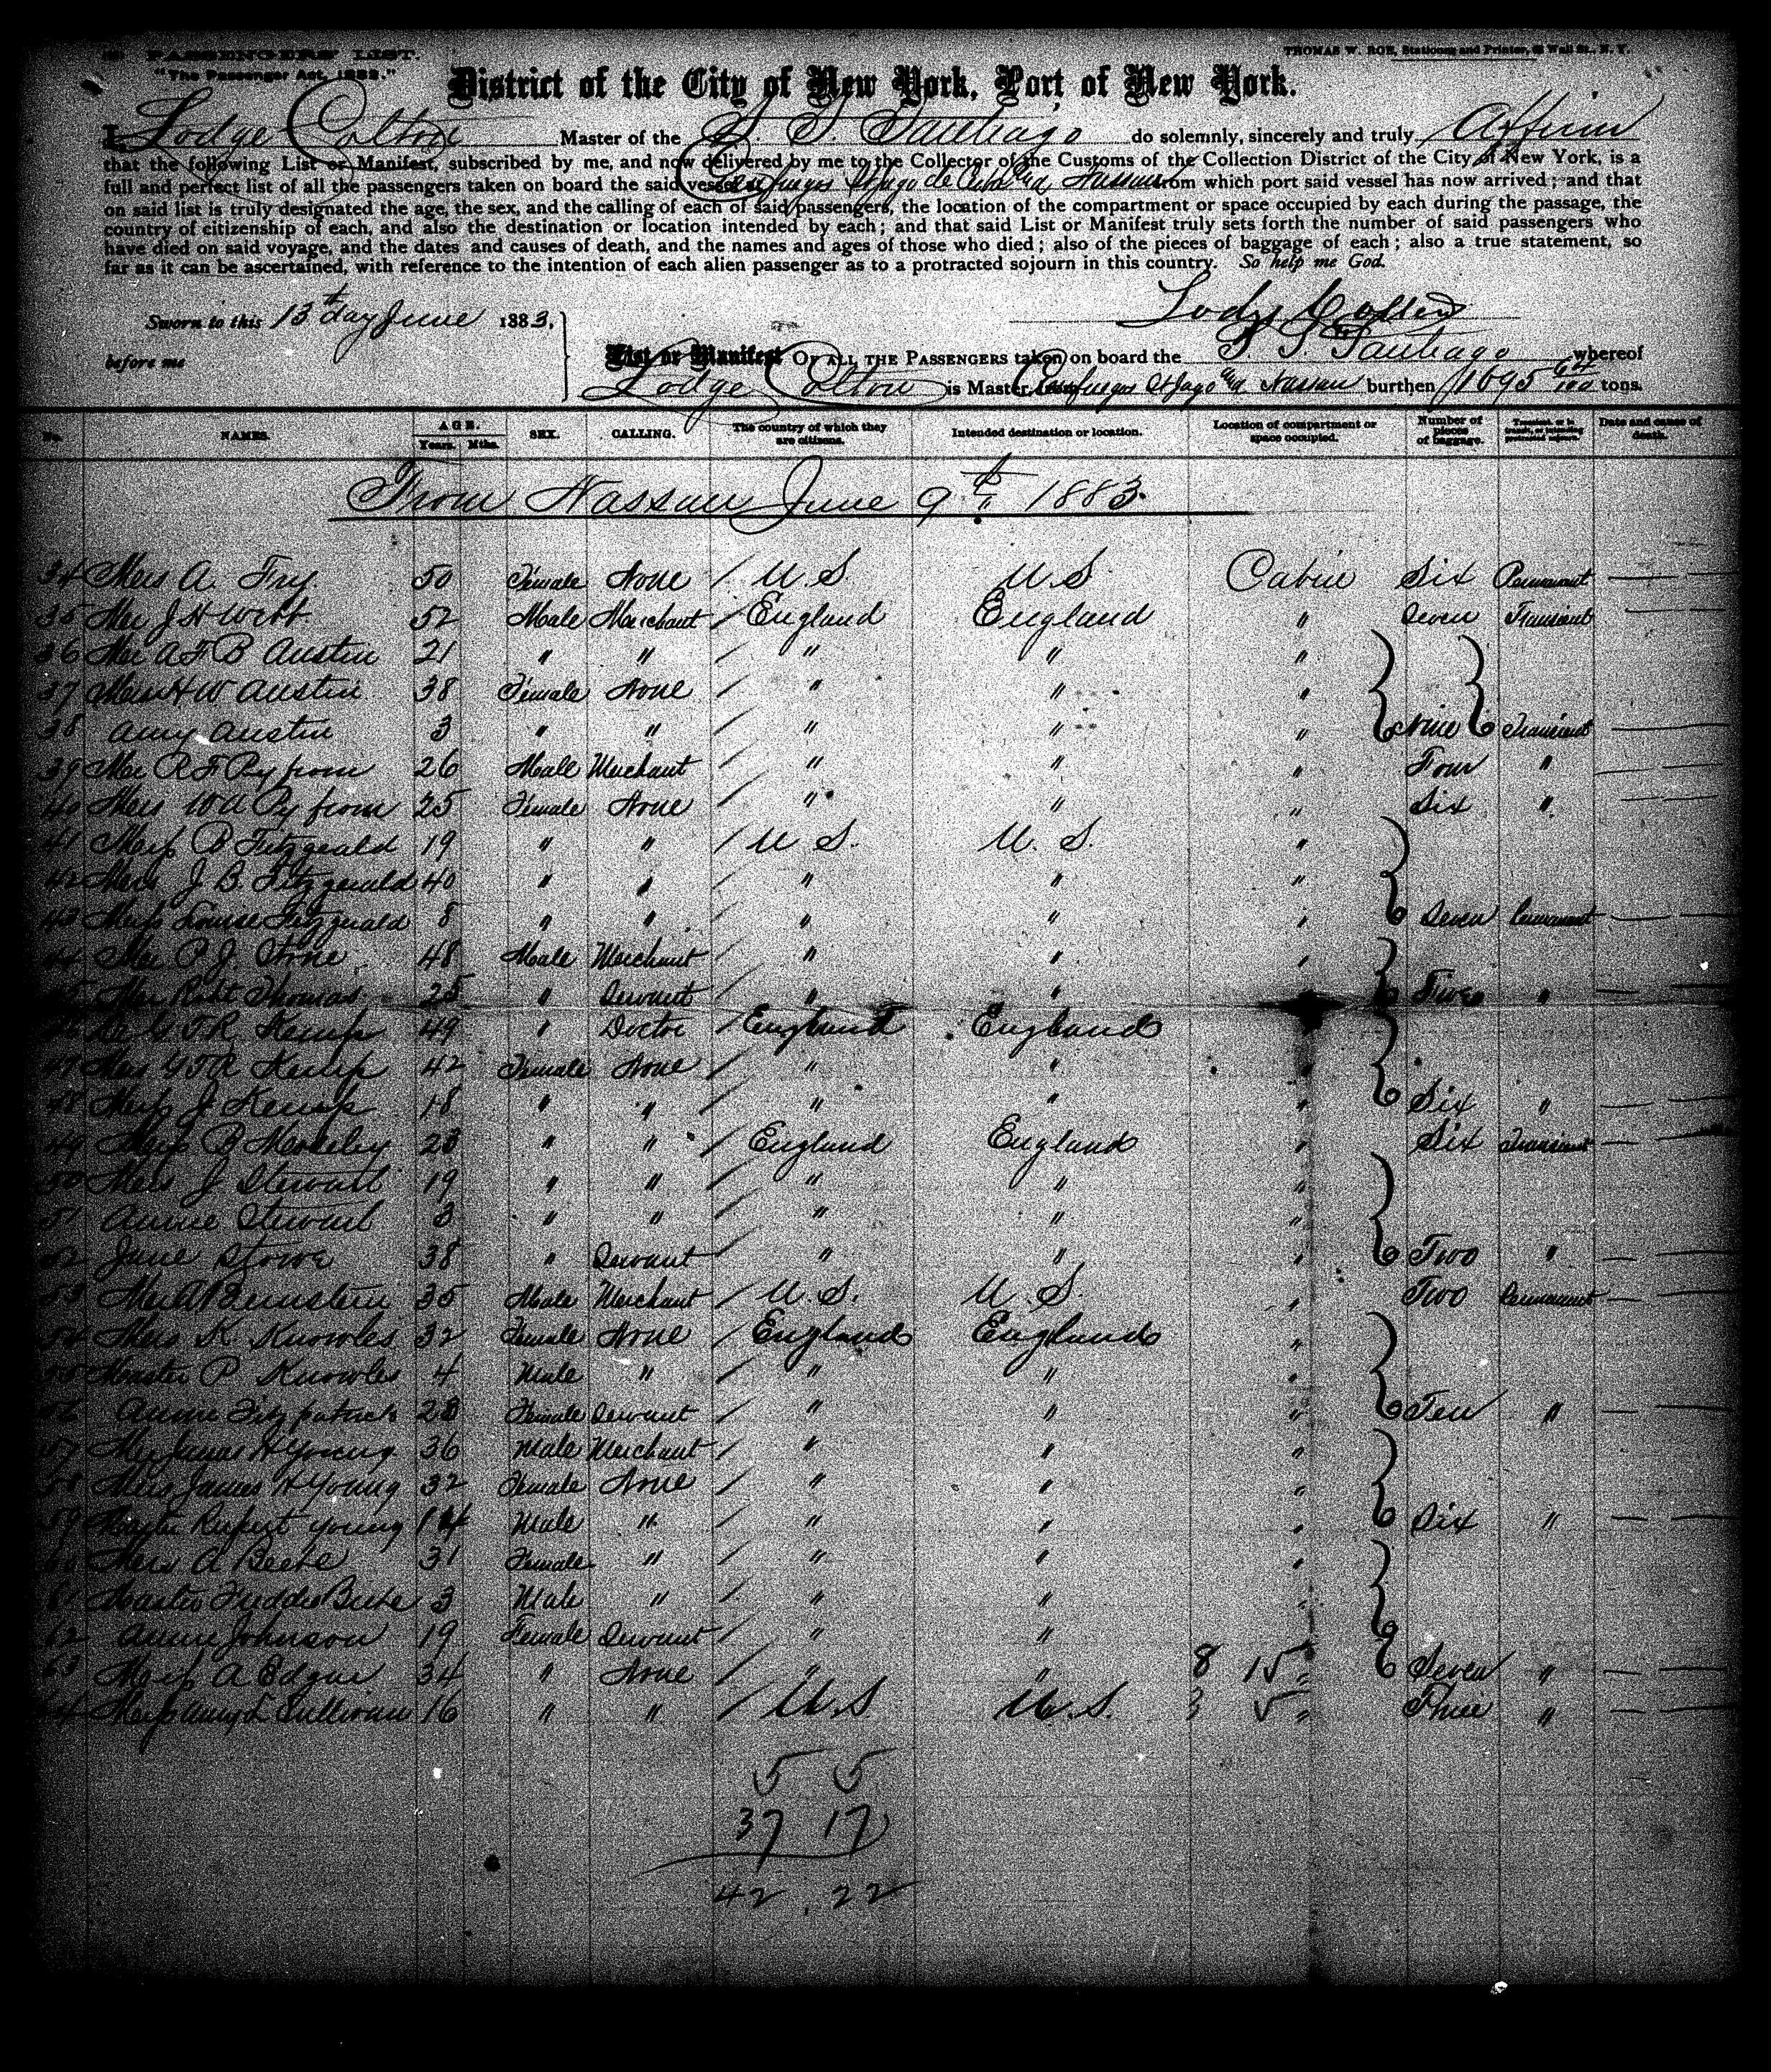 PASSENGERS LIST.
"The Passenger Act, 1882."
THOMAS W. ROE, Stationer and Printer, Wall St., N. Y.
District of the City of New York, Port of New York.
I, Lodge Colton Master of the S. S. Santiago do solemnly, sincerely and truly Affirm
that the following List or Manifest, subscribed by me, and now delivered by me to the Collector of the Customs of the Collection District of the City of New York, is a
full and perfect list of all the passengers taken on board the said vessel at Cienfuegos St Jago de Cuba via Nassau from which port said vessel has now arrived; and that
on said list is truly designated the age, the sex, and the calling of each of said passengers, the location of the compartment or space occupied by each during the passage, the
country of citizenship of each, and also the destination or location intended by each; and that said List or Manifest truly sets forth the number of said passengers who
have died on said voyage, and the dates and causes of death, and the names and ages of those who died; also of the pieces of baggage of each; also a true statement, so
far as it can be ascertained, with reference to the intention of each alien passenger as to a protracted sojourn in this country. So help me God.
Lodge Colton
Sworn to this 13th day June 1883,
before me
List or Manifest OF ALL THE PASSENGERS taken on board the S. S. Santiago whereof
Lodge Colton is Master, from Cienfuegos St Jago via Nassau burthen 1695 64/100 tons.
No. NAMES. AGE. Years. Mths. SEX. CALLING. The country of which they are citizens. Intended destination or location. Location of compartment or space occupied. Number of pieces of baggage. Date and cause of death.
From Nassau June 9th 1883.
34 Mrs A. Fry 50 Female None U.S. U.S. Cabin Six Permanent
35 Mr J H Webb 52 Male Merchant England England " Seven Transient
36 Mr A F B Austin 21 " " " " "
37 Mrs H W Austin 38 Female None " " "
38 Amy Austin 3 " " " " " Nine Transient
39 Mr R F Pyfrom 26 Male Merchant " " " Four "
40 Mrs W A Pyfrom 25 Female None " " " Six "
41 Miss B Fitzgerald 19 " " U.S. U.S. "
42 Mrs J. B. Fitzgerald 40 " " " " "
43 Miss Louise Fitzgerald 8 " " " " " Seven Permanent
44 Mr P. J. 48 Male Merchant " " "
45 Mr Robt Thomas 25 " Servant " " " "
46 Dr G T R Kemp 49 " Doctor England England "
47 Mrs G T R Kemp 42 Female None " " "
48 Miss J Kemp 18 " " " " " Six "
49 Miss B Moseley 23 " " England England " Six Transient
50 Mrs J Stewart 19 " " " " "
51 Annie Stewart 3 " " " " "
52 Jane Stowe 38 " Servant " " " Two "
53 Mr A Bernstein 35 Male Merchant U.S. U.S. " Two Permanent
54 Mrs K. Knowles 32 Female None England England "
55 Master P Knowles 4 Male " " " "
56 Annie Fitzpatrick 28 Female Servant " " " Ten "
57 Mr James H Young 36 Male Merchant " " "
58 Mrs James H Young 32 Female None " " "
59 Master Rupert Young 14 Male " " " " Six "
60 Mrs A Beebe 31 Female " " " "
61 Master Freddie Beebe 3 Male " " " "
62 Annie Johnson 19 Female Servant " "
63 Miss A Edgar 34 " None " " 8 15 " Seven "
64 Miss Amy L Sullivan 16 " " U.S. U.S. 3 5 " Three "
5 5
37 17
42 22